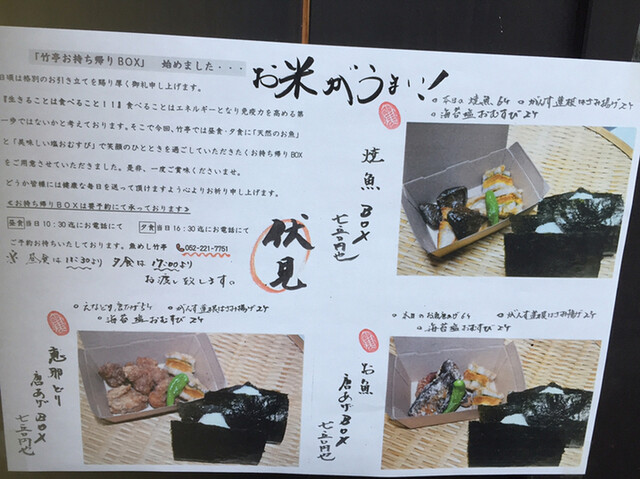 「竹亭お持ち帰りBOX」 始めました・・・
お米がうまい!
日頃は格別のお引き立てを賜り厚く御礼申し上げます。
『生きることは食べること!!』食べることはエネルギーとなり免疫力を高める第
一歩ではないかと考えております。そこで今回、竹亭では昼食・夕食に「天然のお魚」
と「美味しい塩おむすび」で笑顔のひとときを過ごしていただきたくお持ち帰りBOX
をご用意させていただきました。是非、一度ご賞味くださいませ。
どうか皆様には健康な毎日を送って頂けますよう心よりお祈り申し上げます。
≪お持ち帰りBOXは要予約にて承っております≫
昼食 当日10:30迄にお電話にて 夕食 当日16:30迄にお電話にて
ご予約お待ちいたしております。魚めし竹亭 052-221-7751
※ 昼食は11:30より 夕食は17:00より
お渡し致します。
伏見
本日の焼魚64 がんす蓮根はさみ揚げ24
海苔塩おむすび24
焼魚BOX
七五〇円也
えなどり唐あげ54 がんす蓮根はさみ揚げ24
海苔塩おむすび24
恵那どり
唐あげBOX
七五〇円也
本日のお魚唐あげ64 がんす蓮根はさみ揚げ24
海苔塩おむすび24
お魚
唐あげBOX
七五〇円也